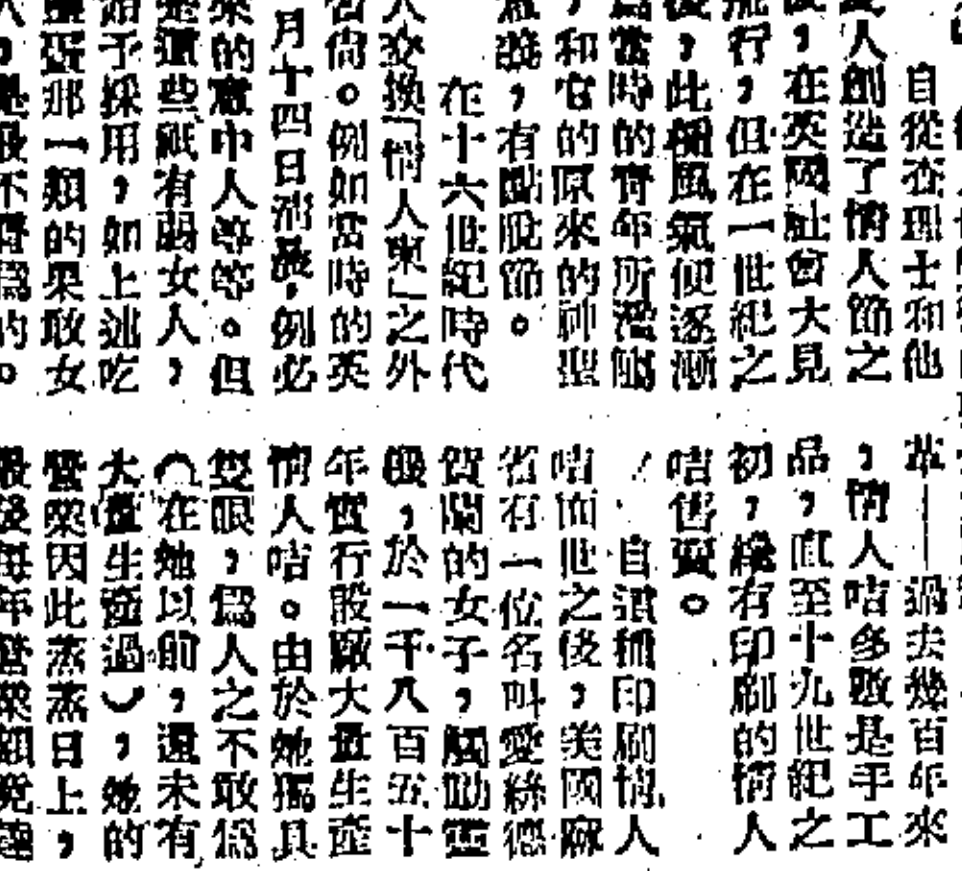 自從查理士和他
人創造了情人節之
後,在英國社會大見
流行,但在一世紀之
後,此種風氣便逐漸
為當時的青年所濫觴
,和它的原來的神聖
意義,有點脫節。
在十六世紀時代
人交換「情人柬」之外
尚。例如當時的英
月十四日清晨,例必
來的意中人等等。但
是這些祇有弱女人,
給予採用,如上述吃
鹽蛋那一類的果敢女
人,是不屑為的。
革——過去幾百年來
,情人咭多數是手工
品,直至十九世紀之
初,纔有印刷的情人
咭售賣。
自這種印刷情人
咭面世之後,美國麻
省有一位名叫愛絲德
賀蘭的女子,觸動靈
機,於一千八百五十
年實行設廠大量生產
情人咭。由於她獨具
雙眼,為人之不敢為
(在她以前,還未有
大量生產過),她的
營業因此蒸蒸日上,
最後每年營業額竟達